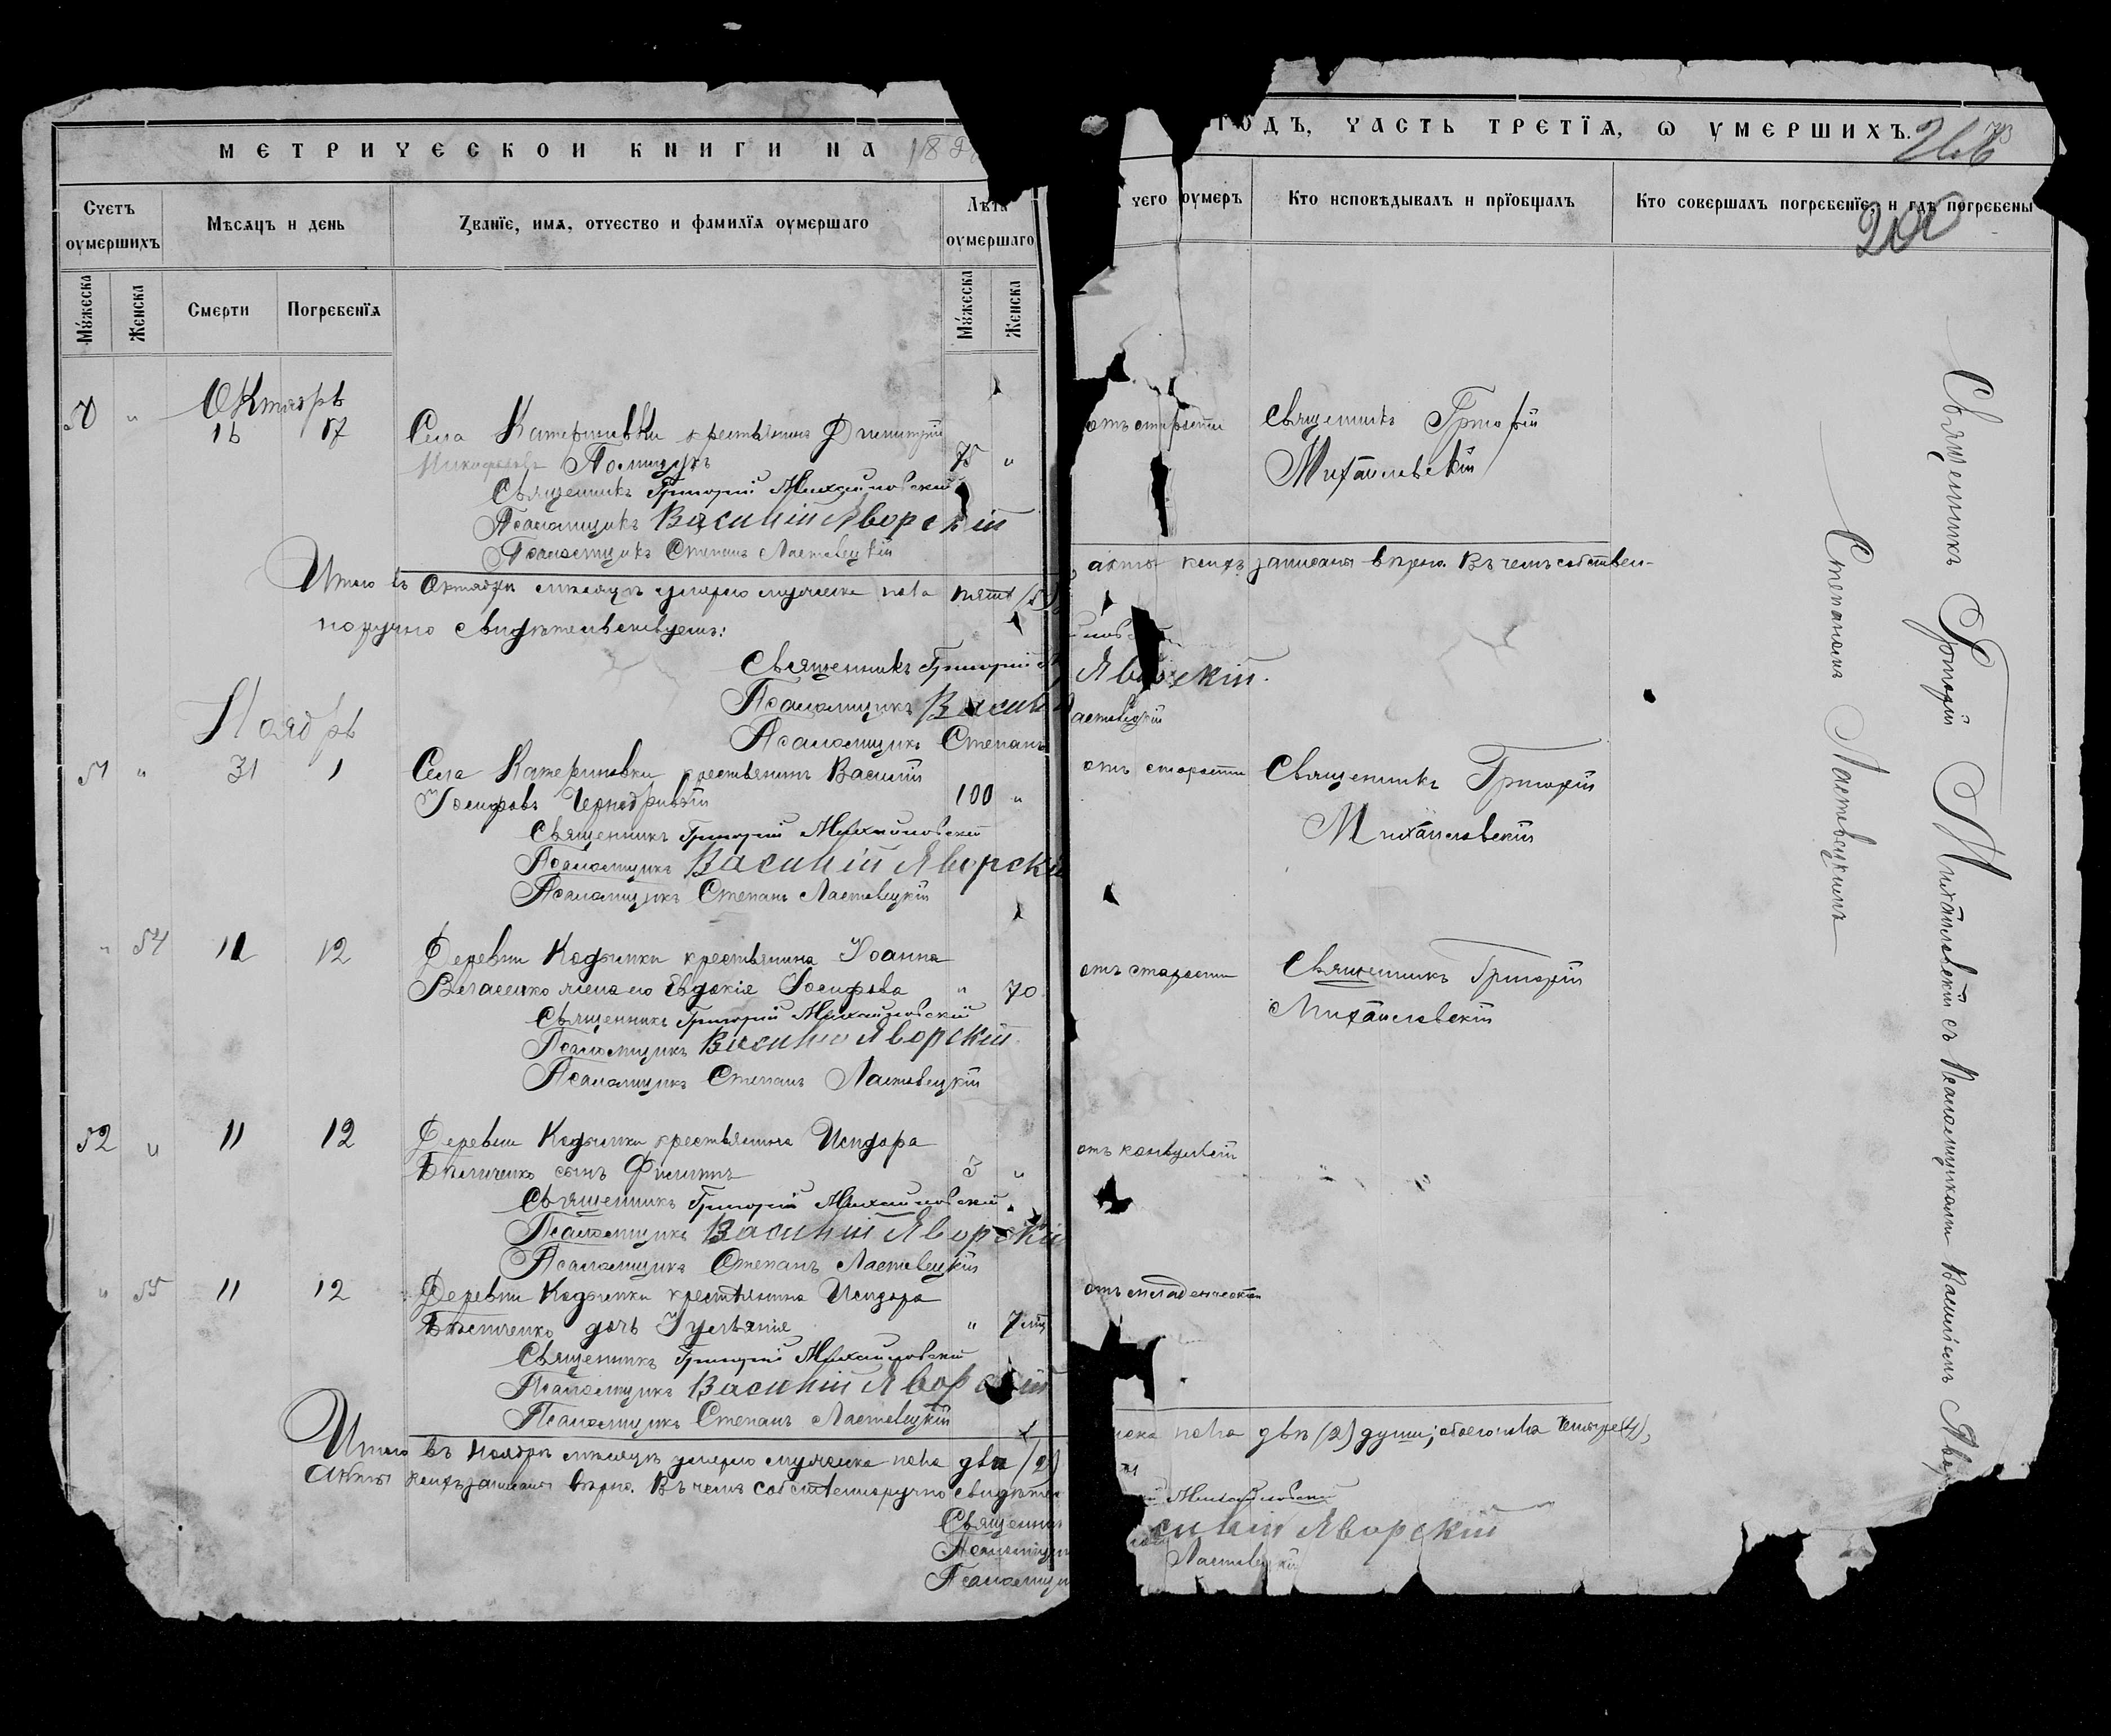 МЕТРИЧЕСКОЙ КНИГИ НА 18
Счетъ оумершихъ
Мѣсяцъ и день
Званїе, имя, отчество и фамилїя оумершаго
Лѣта оумершаго
Мужеска
Женска
Смерти
Погребенїя
Мужеска
Женска
Октябрь
50 " 16 17 Села Катериновки крестьянинъ Димитрій
Никифоровъ Полищукъ 75 "
Священникъ Григорій Михайловскій
Псаломщикъ Василій Яворскій
Псаломщикъ Степанъ Ластовецкій
Итого въ Октябрѣ мѣсяцѣ умерло мужеска пола пять (5)
поручно свидѣтельствуемъ:
Священникъ Григорій
Псаломщикъ Васил
Псаломщикъ Степанъ
Ноябрь
51 " 31 1 Села Катериновки крестьянинъ Василій
Іосифовъ 100 "
Священникъ Григорій Михайловскій
Псаломщикъ Василій Яворскі
Псаломщикъ Степанъ Ластовецкій
" 54 11 12 Деревни Кодымки крестьянина Іоанна
жена его Евдокія Іосифова " 70
Священникъ Григорій Михайловскій
Псаломщикъ Василій Яворскій
Псаломщикъ Степанъ Ластовецкій
52 " 11 12 Деревни Кодымки крестьянина Исидора
сынъ Филиппъ 3 "
Священникъ Григорій Михайловскій
Псаломщикъ Василій Яворскій
Псаломщикъ Степанъ Ластовецкій
" 55 11 12 Деревни Кодымки крестьянина Исидора
дочь Іуліанія " 7 мѣц
Священникъ Григорій Михайловскій
Псаломщикъ Василій Яворскій
Псаломщикъ Степанъ Ластовецкій
Итого въ Ноябрѣ мѣсяцѣ умерло мужеска пола два (2)
Акты коихъ записаны вѣрно. Въ чемъ собственноручно свидѣтел
Священник
Псаломщи
Псаломщи
ГОДЪ, ЧАСТЬ ТРЕТЇЯ, Ѡ УМЕРШИХЪ.
чего оумеръ
Кто исповѣдывалъ и прїобщалъ
Кто совершалъ погребенїе, и гдѣ погребены
отъ старости Священникъ Григорій
Михайловскій
акты коихъ записаны вѣрно. Въ чемъ собствен-
Яворскій.
астовецкій
отъ старости Священникъ Григорій
Михайловскій
отъ старости Священникъ Григорій
Михайловскій
отъ конвульсій
отъ младенческой
ска пола двѣ (2) души; обоего пола четыре (4),
й Михайловскій
силій Яворскій
Ластовецкій
Священникъ Григорій Михайловскій съ Псаломщиками Василіемъ Явор
Степаномъ Ластовецкимъ